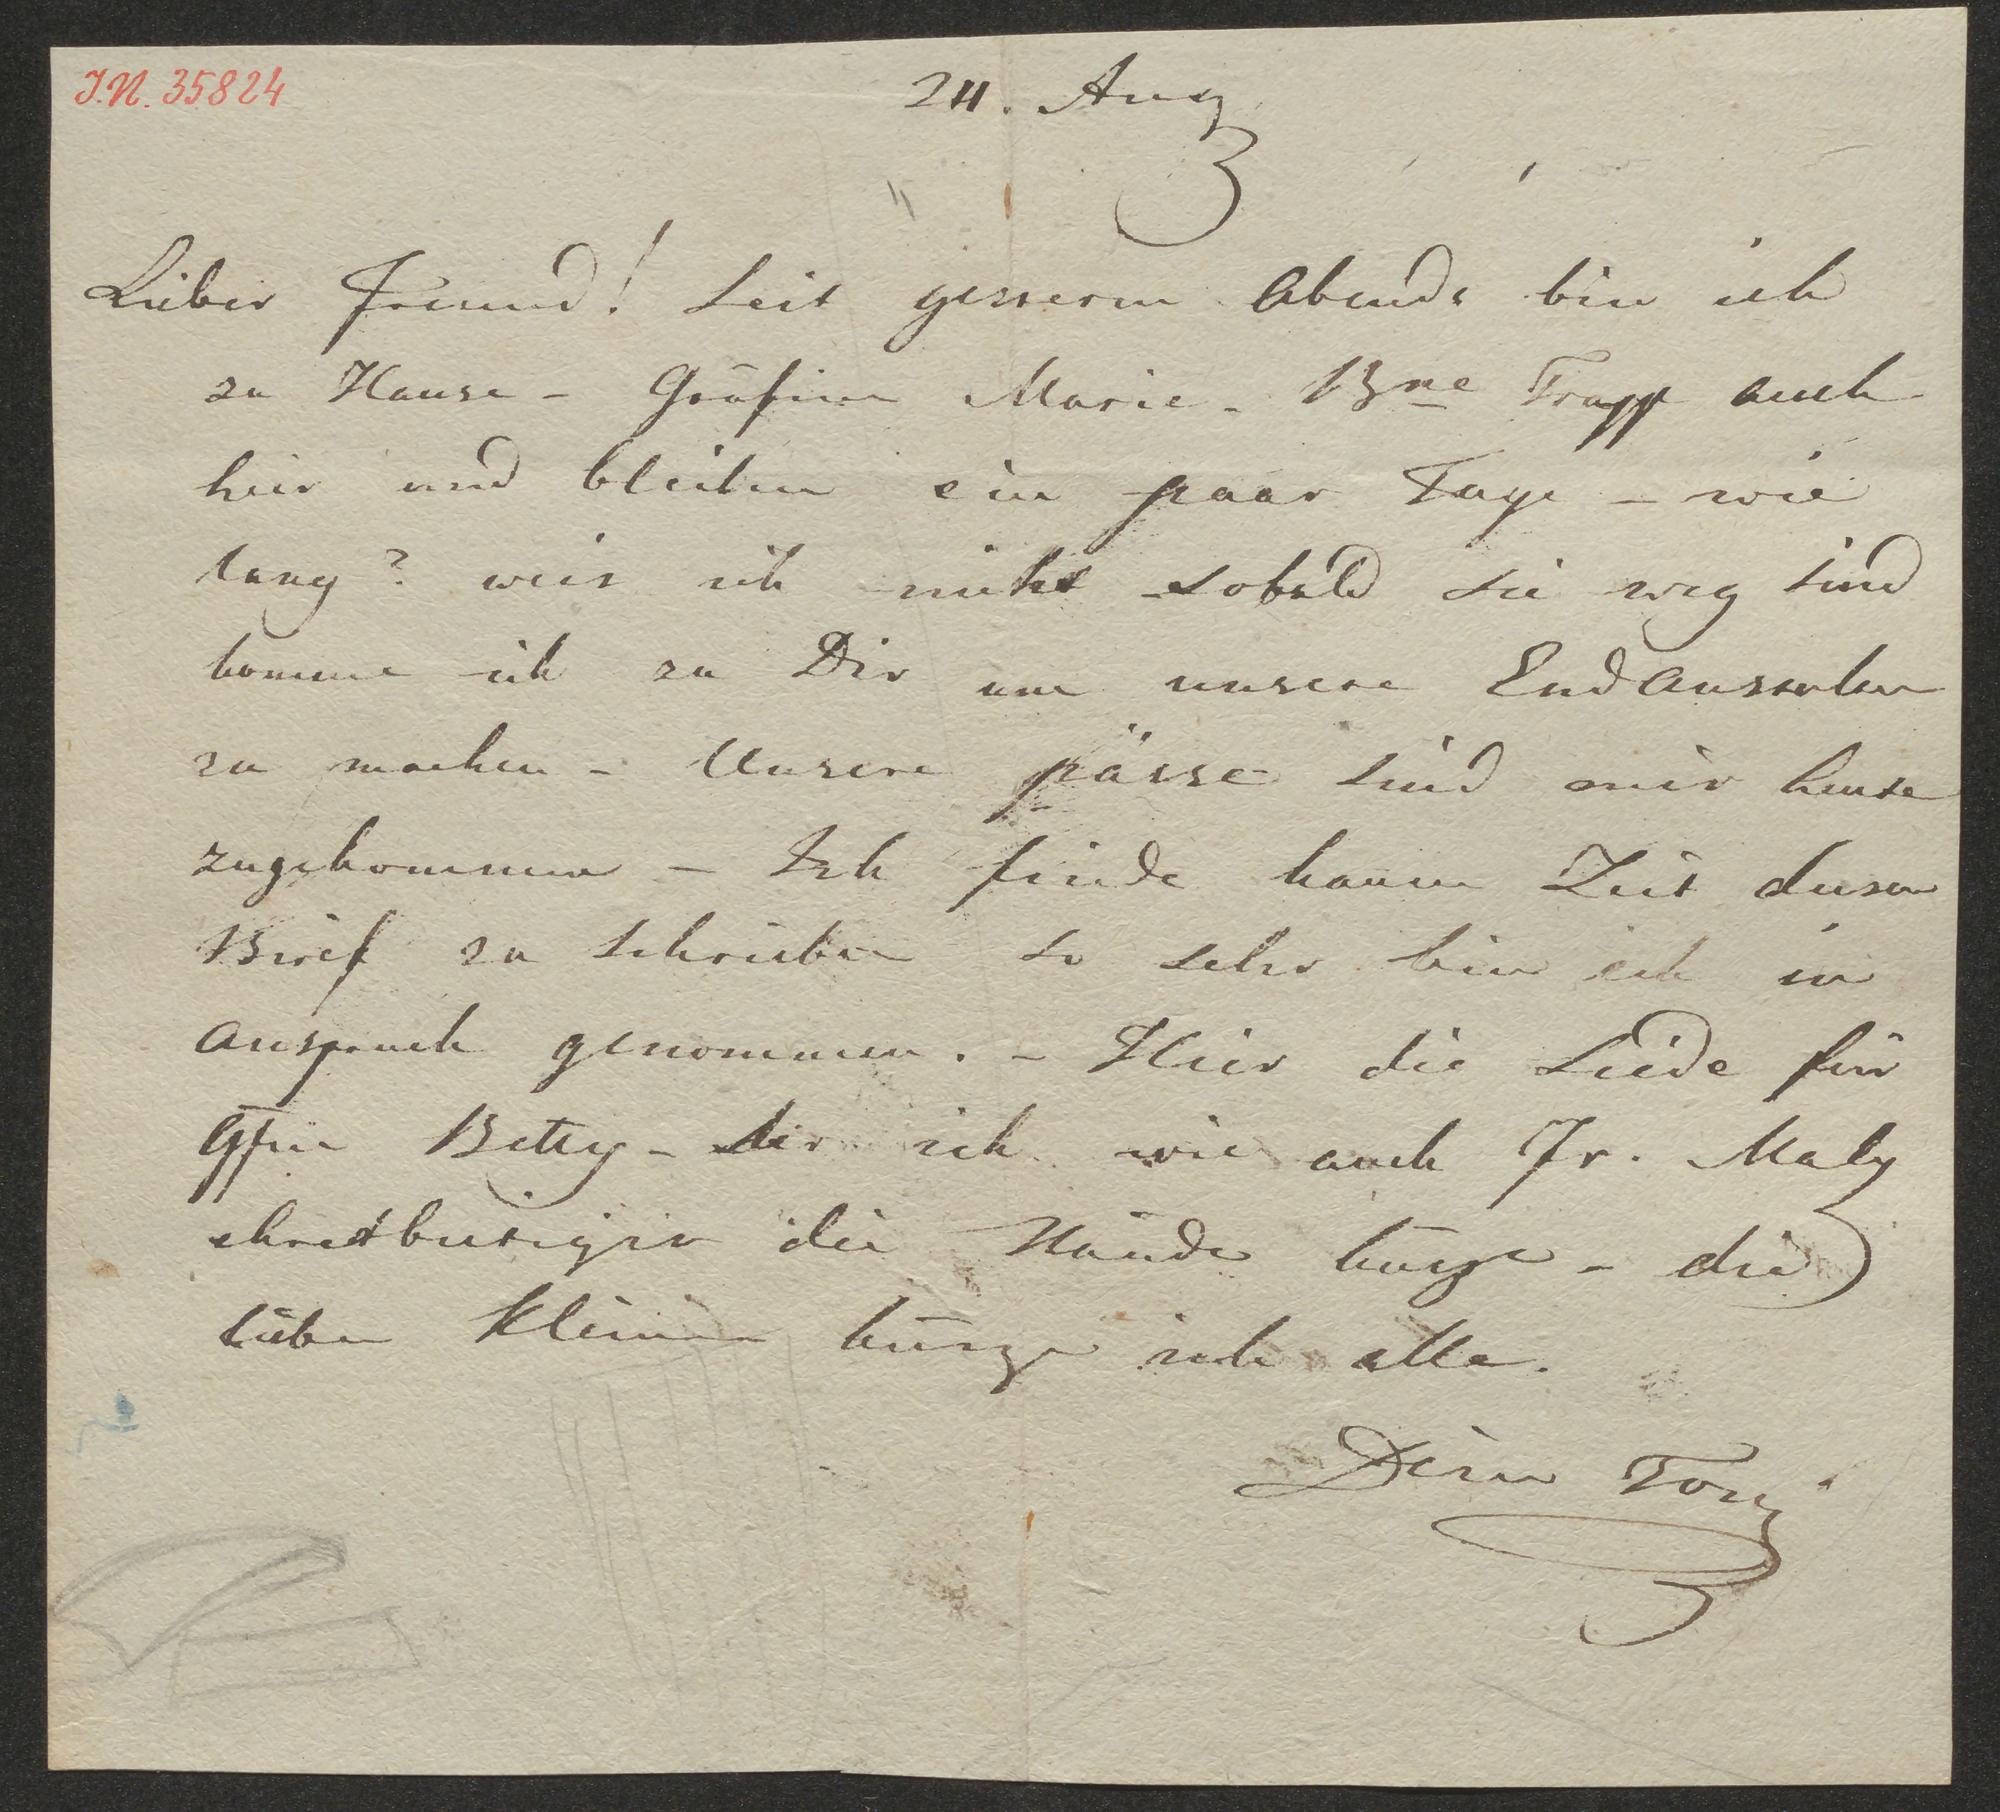 J.N. 35824
24. Aug
Lieber Freund! Seit gestern Abends bin ich
zu Hause - Gräfin Marie - Bne Trapp auch
hier und bleiben ein paar Tage - wie
lang? weis ich nicht sobald sie weg sind
komme ich zu Dir um unsere End
zu machen - Unsere pässe sind mir heute
zugekommen - Ich finde kaum Zeit diesen
Brief zu schreiben so sehr bin ich in
anspruch genommen. - Hier die Seide für
Gfin Betty - der ich wie auch Fr. Maly
die Hände küsze - die
lieben kleinen küsze ich alle.
Dein Tony